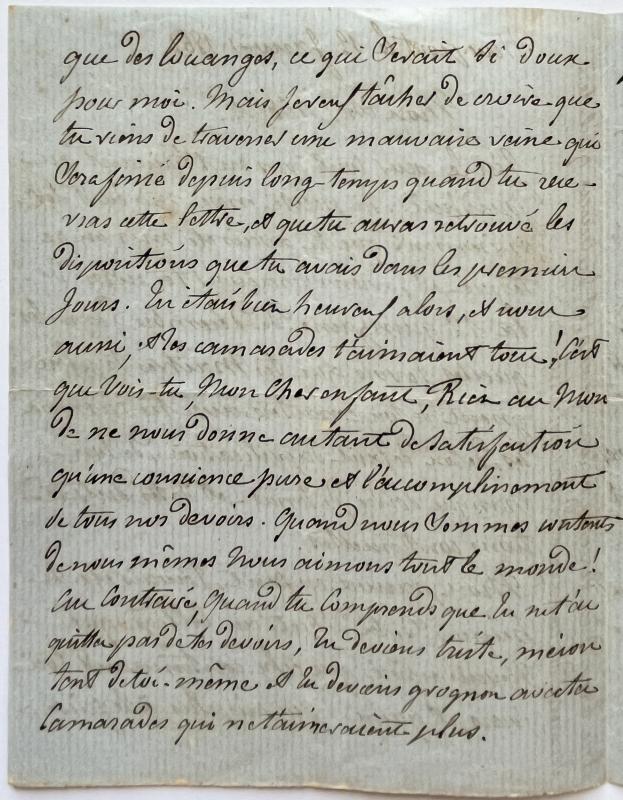 que des louanges, ce qui serait si doux
pour moi. Mais je veux tâcher de croire que
tu viens de traverser une mauvaise veine qui
sera finie depuis long-temps quand tu rece-
vras cette lettre, et que tu auras retrouvé les
dispositions que tu avais dans les premiers
jours. Tu étais bien heureux alors, et nous
aussi, et tes camarades t'aimaient tous! C'est
que vois-tu, Mon Cher enfant, Rien au Mon
de ne nous donne autant de satisfaction
qu'une conscience pure et l'accomplissement
de tous nos devoirs. Quand nous sommes contents
de nous mêmes nous aimons tout le monde!
Au Contraire, quand tu Comprends que tu ne t'ac
quittes pas de tes devoirs, tu deviens triste, mécon
tent de toi-même et tu deviens grognon avec tes
Camarades qui ne t'aimeraient plus.